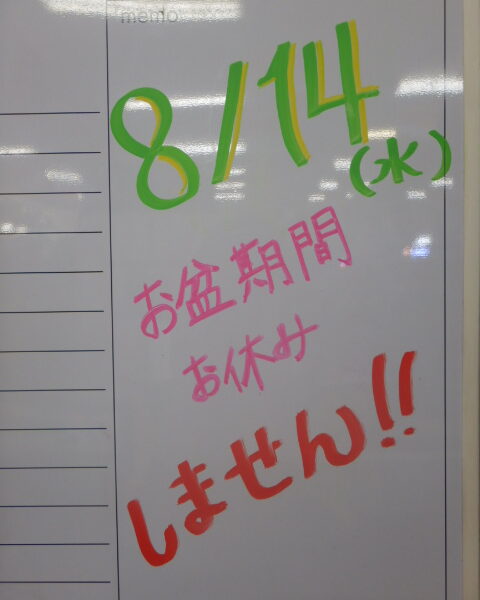 memo
8/14
(水)
お盆期間
お休み
しません!!